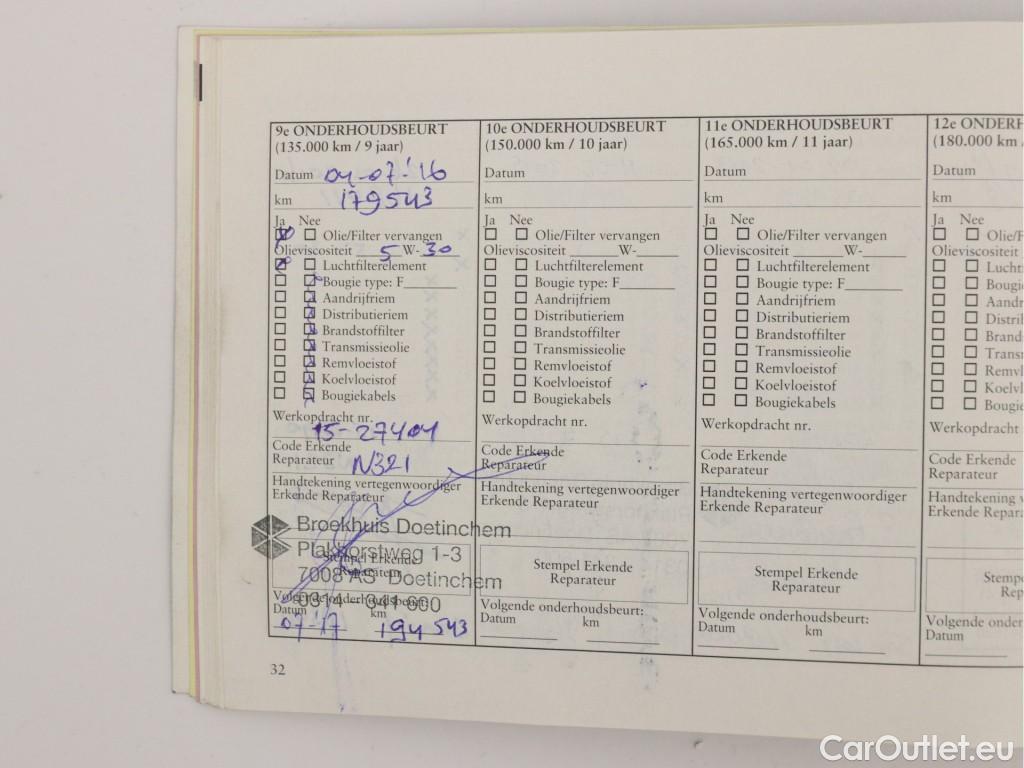 9e ONDERHOUDSBEURT
(135.000 km / 9 jaar)
Datum 04-07-'16
km 179543
Ja Nee
Olie/Filter vervangen
Olieviscositeit 5 W- 30
Luchtfilterelement
Bougie type: F
Aandrijfriem
Distributieriem
Brandstoffilter
Transmissieolie
Remvloeistof
Koelvloeistof
Bougiekabels
Werkopdracht nr.
15-27404
Code Erkende
Reparateur N321
Handtekening vertegenwoordiger
Erkende Reparateur
Broekhuis Doetinchem
Plakhorstweg 1-3
Stempel Erkende
Reparateur
7008 AS Doetinchem
Volgende onderhoudsbeurt:
0314 - 341 600
Datum km
07-'17 194543
32
10e ONDERHOUDSBEURT
(150.000 km / 10 jaar)
Datum
km
Ja Nee
Olie/Filter vervangen
Olieviscositeit W-
Luchtfilterelement
Bougie type: F
Aandrijfriem
Distributieriem
Brandstoffilter
Transmissieolie
Remvloeistof
Koelvloeistof
Bougiekabels
Werkopdracht nr.
Code Erkende
Reparateur
Handtekening vertegenwoordiger
Erkende Reparateur
Stempel Erkende
Reparateur
Volgende onderhoudsbeurt:
Datum km
11e ONDERHOUDSBEURT
(165.000 km / 11 jaar)
Datum
km
Ja Nee
Olie/Filter vervangen
Olieviscositeit W-
Luchtfilterelement
Bougie type: F
Aandrijfriem
Distributieriem
Brandstoffilter
Transmissieolie
Remvloeistof
Koelvloeistof
Bougiekabels
Werkopdracht nr.
Code Erkende
Reparateur
Handtekening vertegenwoordiger
Erkende Reparateur
Stempel Erkende
Reparateur
Volgende onderhoudsbeurt:
Datum km
12e ONDERH
(180.000 km
Datum
km
Ja Nee
Olie/F
Olieviscositeit
Lucht
Bougi
Aandr
Distri
Brand
Trans
Remvl
Koelvl
Bougie
Werkopdracht
Code Erkende
Reparateur
Handtekening v
Erkende Repara
Stemp
Rep
Volgende onder
Datum
CarOutlet.eu